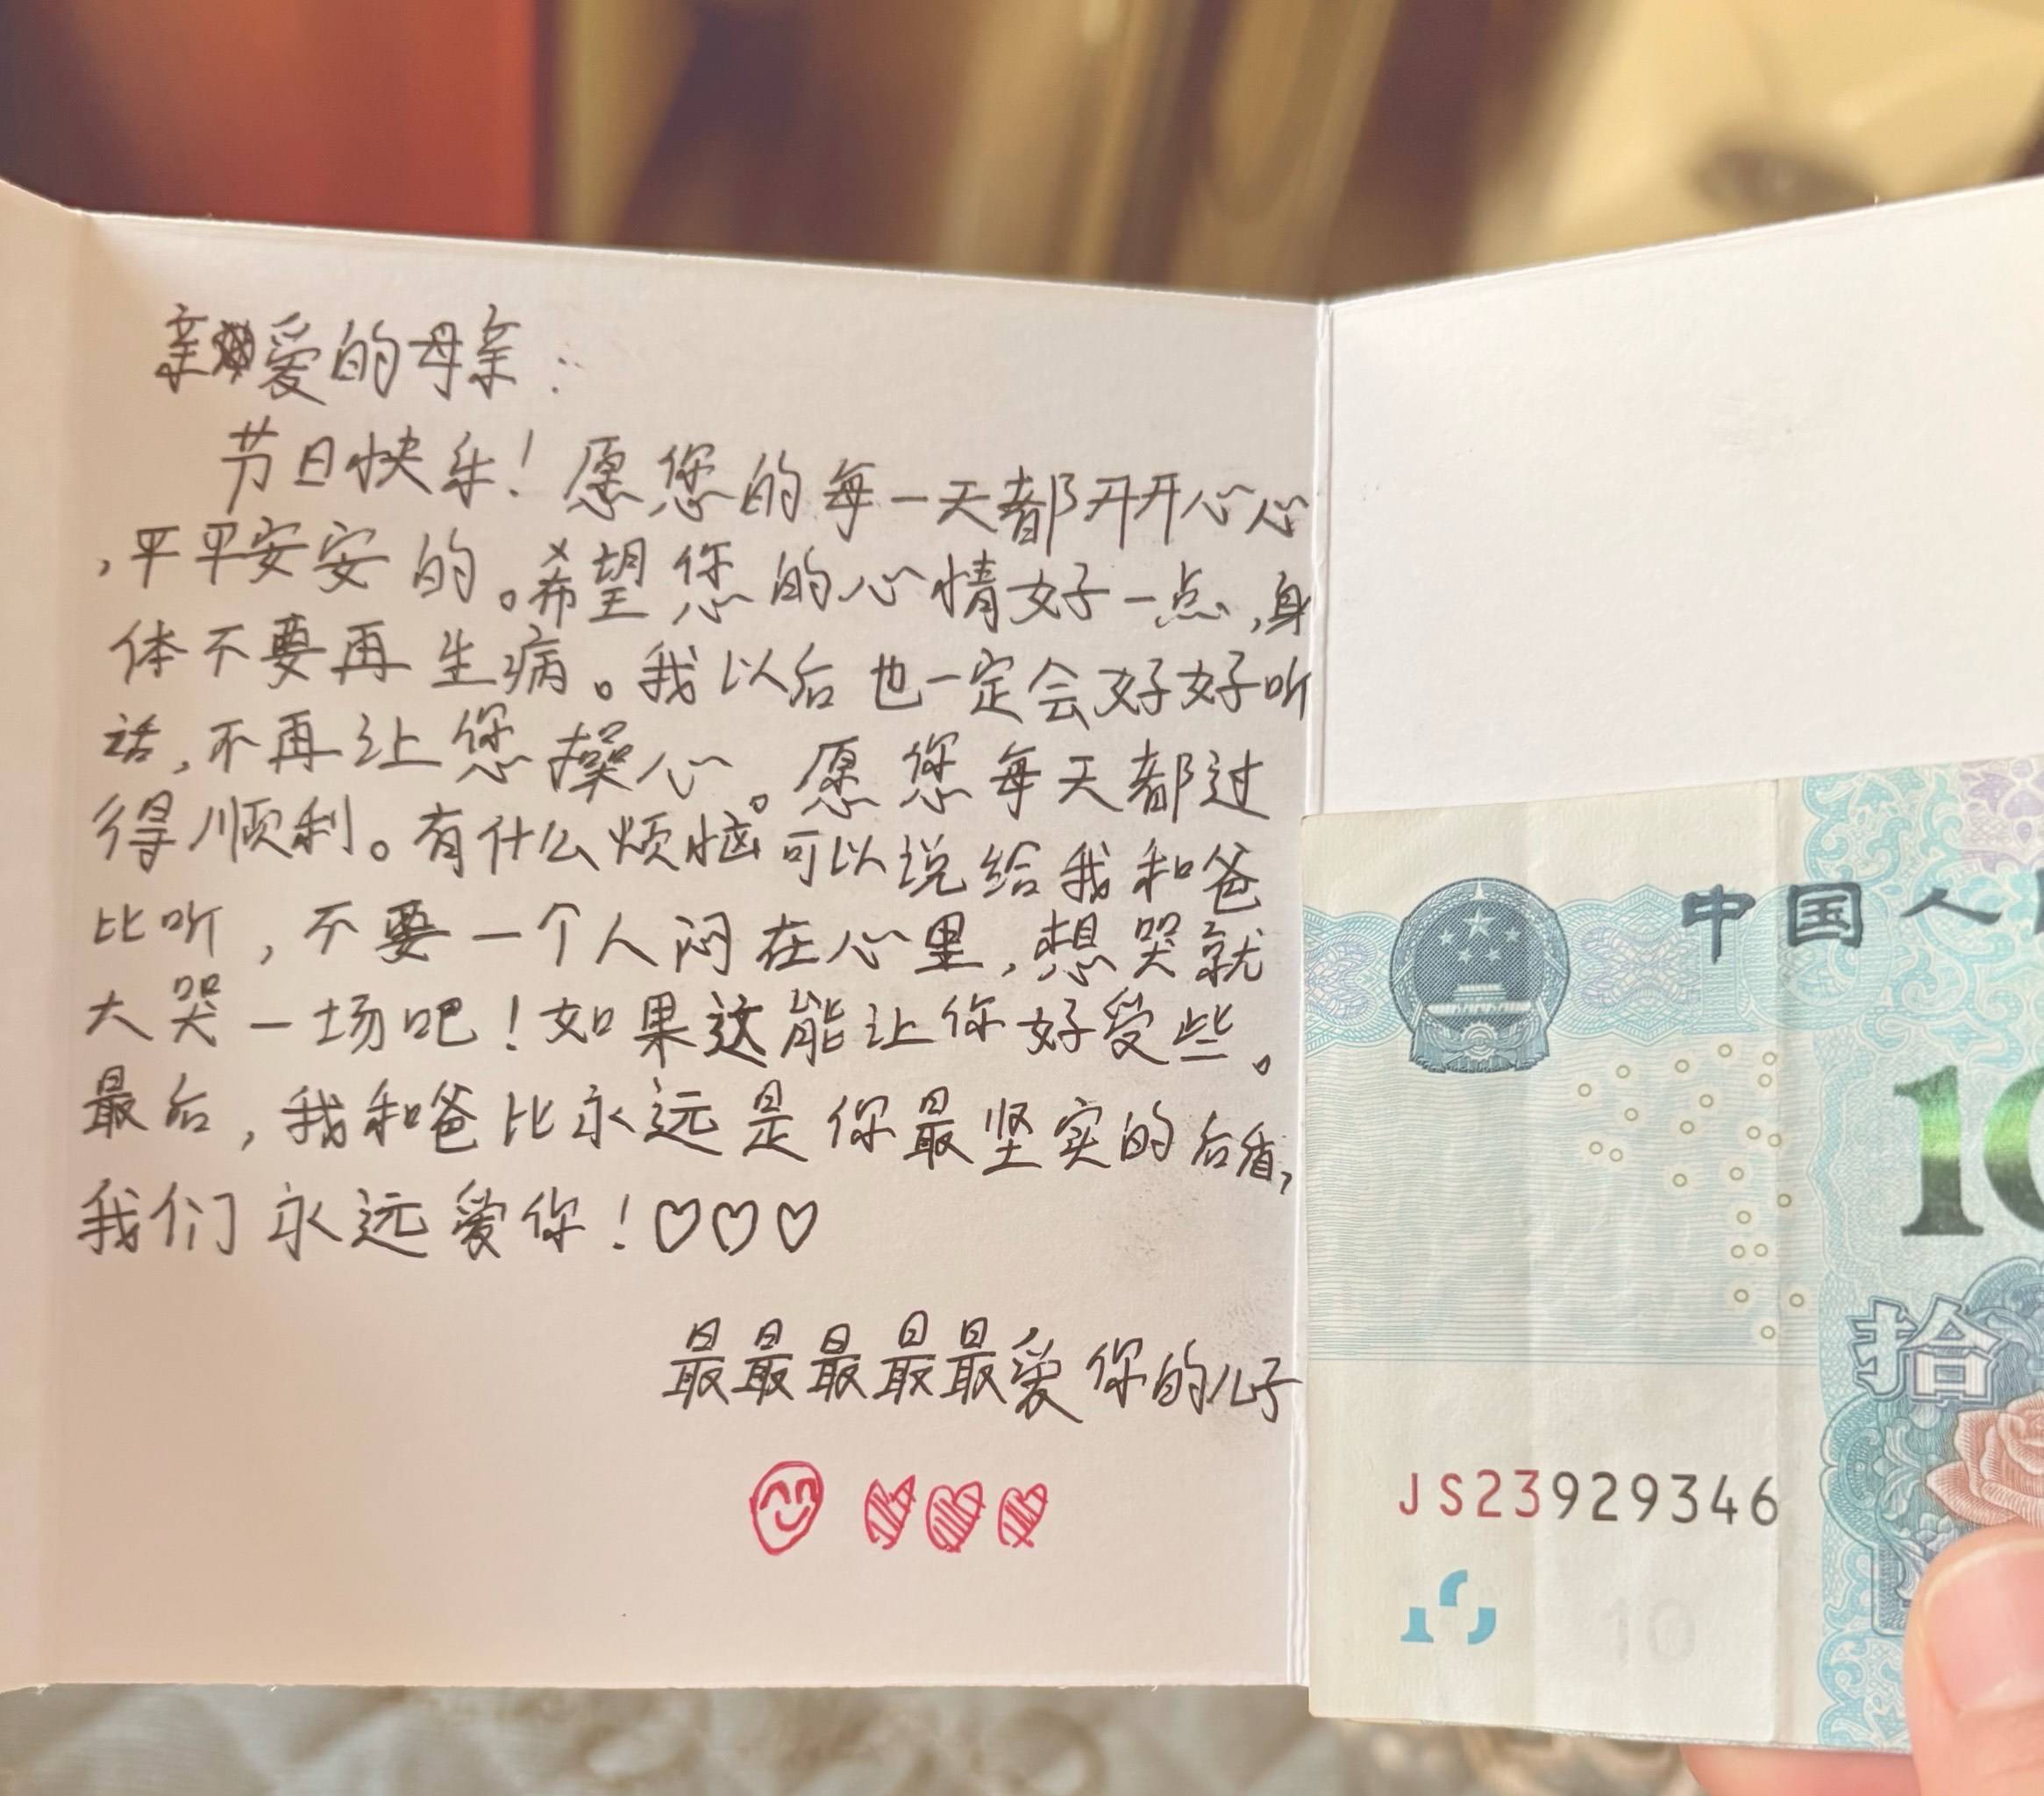 亲爱的母亲：
节日快乐！愿您的每一天都开开心心
，平平安安的。希望您的心情好一点，身
体不要再生病。我以后也一定会好好听
话，不再让您操心。愿您每天都过
得顺利。有什么烦恼可以说给我和爸
比听，不要一个人闷在心里，想哭就
大哭一场吧！如果这能让你好受些。
最后，我和爸比永远是你最坚实的后盾，
我们永远爱你！♡♡♡
最最最最最爱你的儿子
中国人
10
拾
JS23929346
10